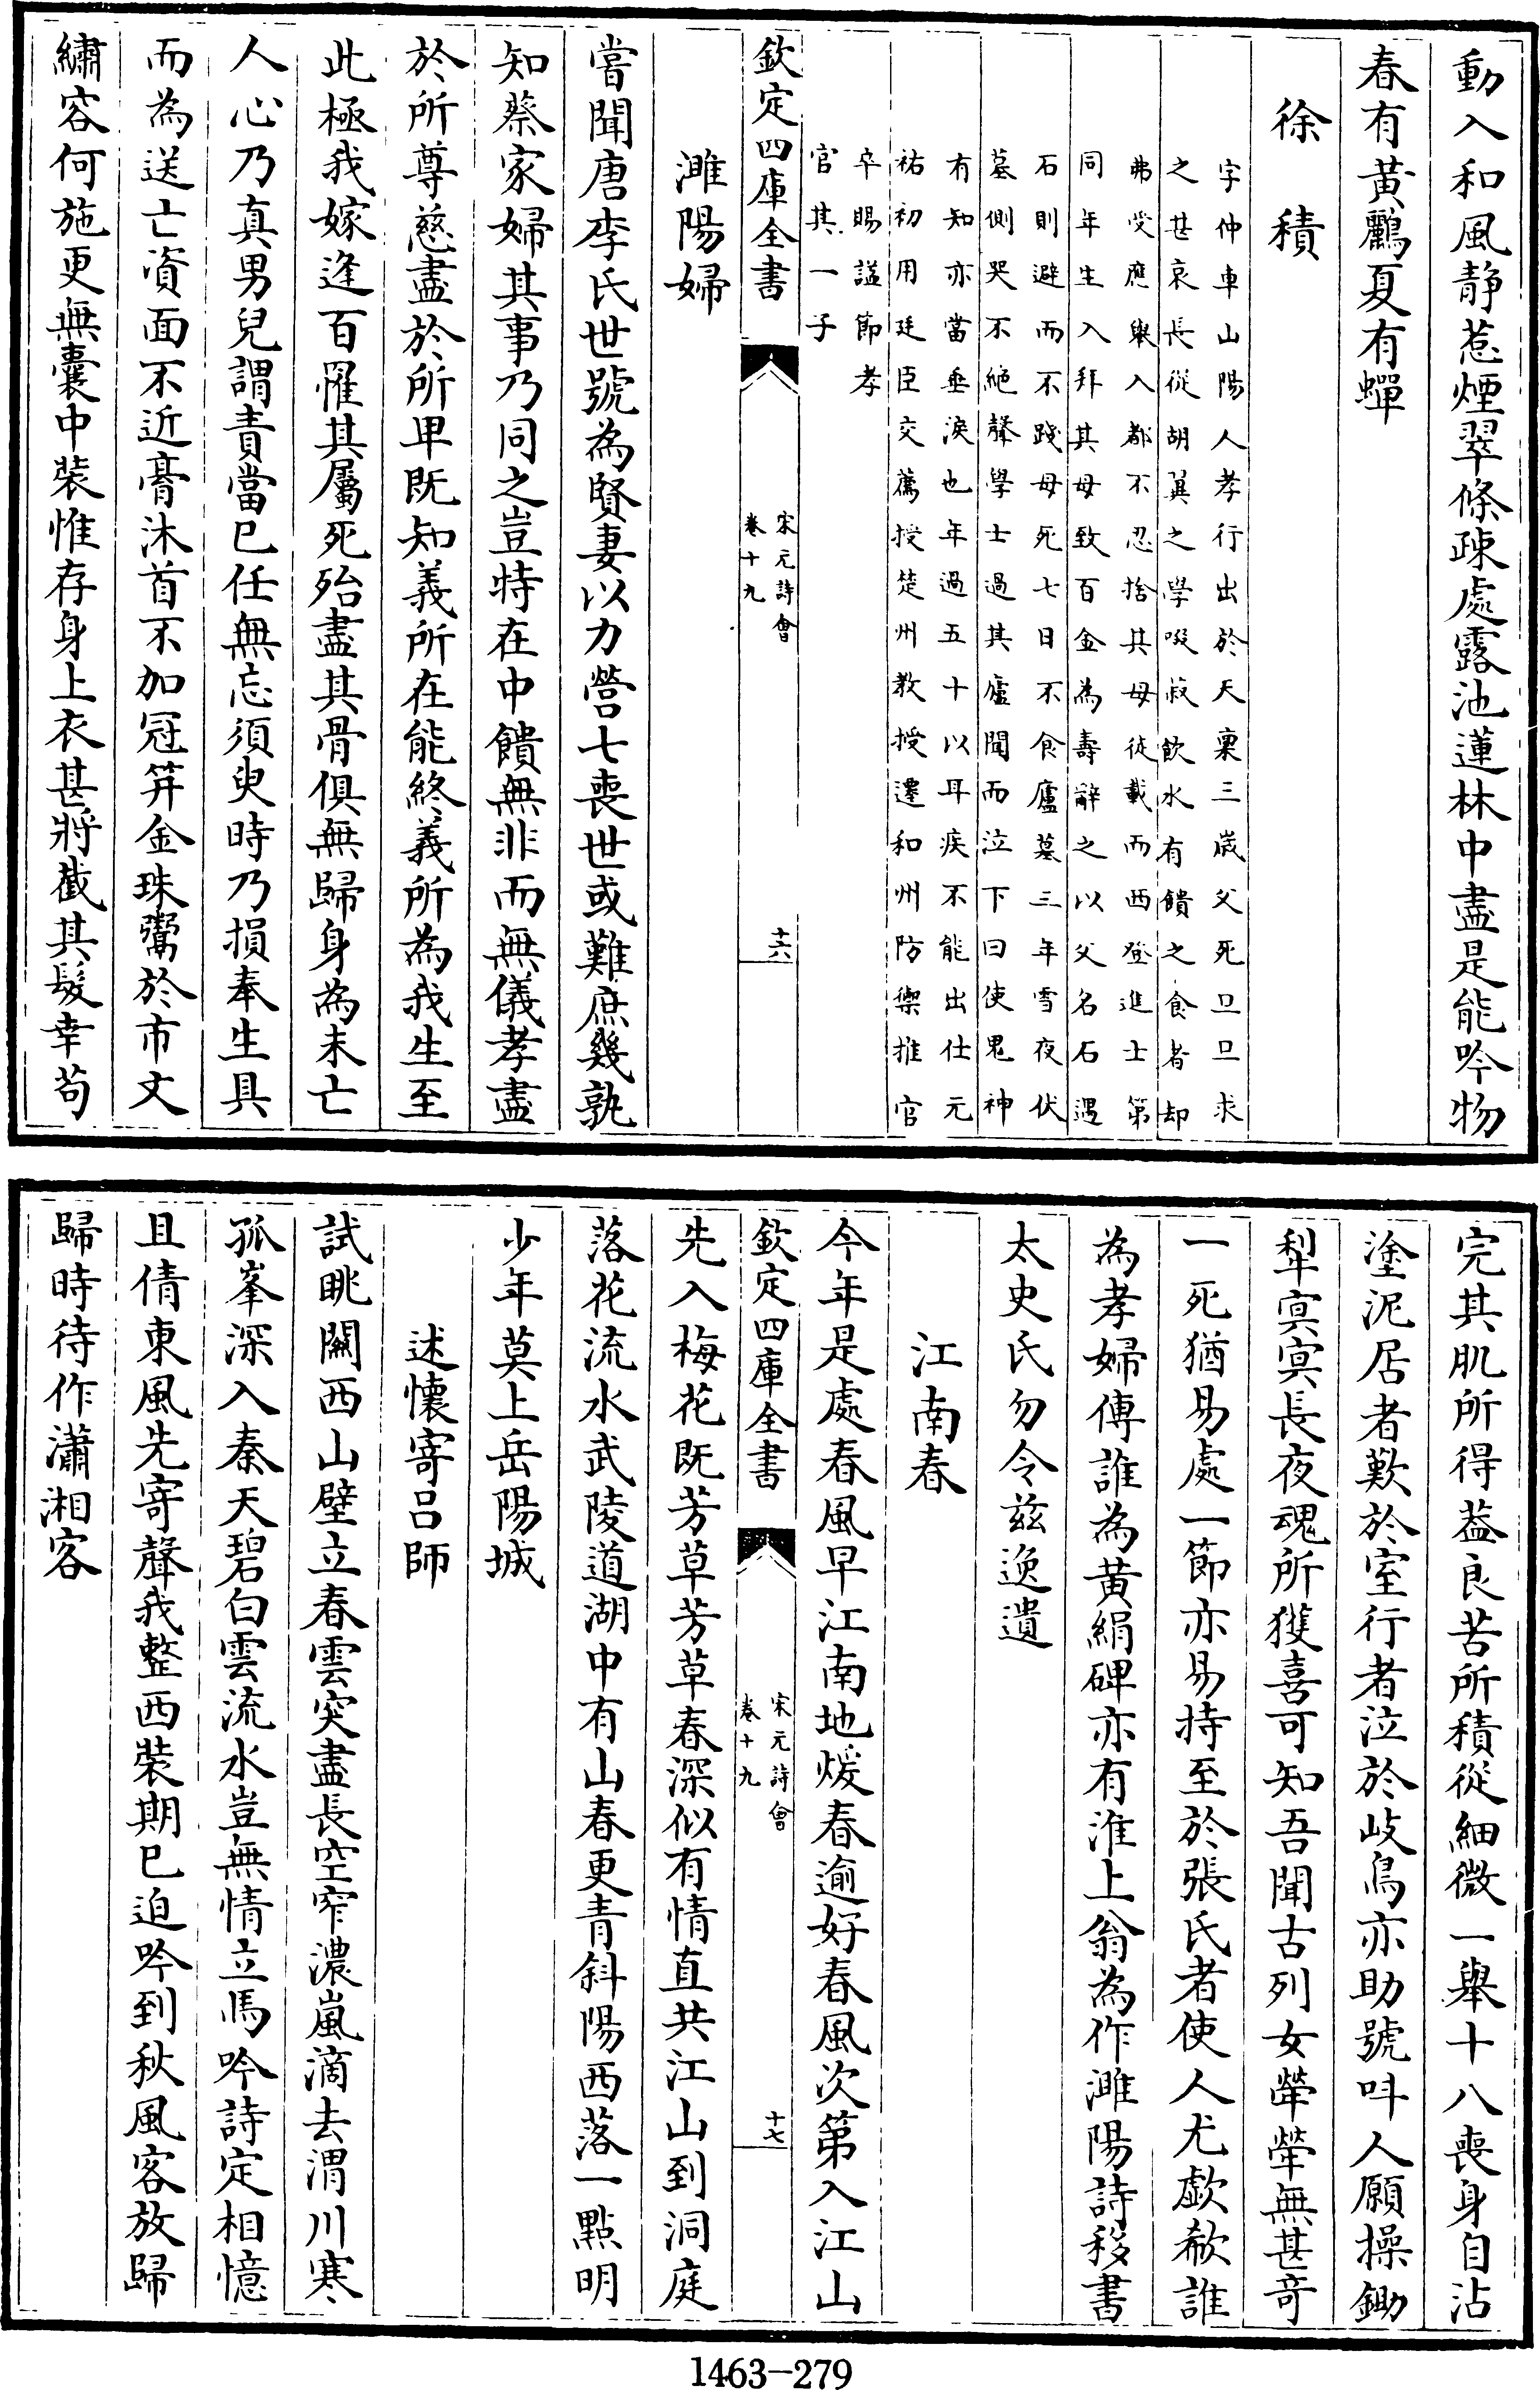 動入和風静惹煙翠條疎處露池蓮林中盡是能吟物
春有黃鸝夏有蟬
徐積
字仲車山陽人孝行出於天稟三歲父死旦旦求
之甚哀長從胡翼之學啜菽飲水有饋之食者却
弗受應舉入都不忍捨其母徒載而西登進士第
同年生入拜其母致百金為壽辭之以父名石遇
石則避而不踐母死七日不食廬墓三年雪夜伏
墓側哭不絶聲學士過其廬聞而泣下曰使鬼神
有知亦當垂淚也年過五十以耳疾不能出仕元
祐初用廷臣交薦授楚州教授遷和州防禦推官
卒賜諡節孝
官其一子
欽定四庫全書
宋元詩會
卷十九
十六
濉陽婦
嘗聞唐李氏世號為賢妻以力營七喪世或難庶幾孰
知蔡家婦其事乃同之豈特在中饋無非而無儀孝盡
於所尊慈盡於所甲既知義所在能終義所為我生至
此極我嫁逢百罹其屬死殆盡其骨俱無歸身為未亡
人心乃真男兒謂責當已任無忘須臾時乃損奉生具
而為送亡資面不近膏沐首不加冠笄金珠鬻於市文
繡容何施更無囊中裝惟存身上衣甚將截其髮幸苟
完其肌所得葢良苦所積從細微一舉十八喪身自沾
塗泥居者歎於室行者泣於岐鳥亦助號呌人願操鋤
犁㝠㝠長夜魂所獲喜可知吾聞古列女犖犖無甚奇
一死猶易處一節亦易持至於張氏者使人尤歔欷誰
為孝婦傳誰為黃絹碑亦有淮上翁為作濉陽詩移書
太史氏勿令兹逸遺
江南春
今年是處春風早江南地煖春逾好春風次第入江山
欽定四庫全書
宋元詩會
卷十九
十七
先入梅花既芳草芳草春深似有情直共江山到洞庭
落花流水武陵道湖中有山春更青斜陽西落一點明
少年莫上岳陽城
述懷寄呂師
試眺闗西山壁立春雲突盡長空窄濃嵐滴去渭川寒
孤峯深入秦天碧白雲流水豈無情立馬吟詩定相憶
且倩東風先寄聲我整西裝期已迫吟到秋風客放歸
歸時待作瀟湘客
1463-279